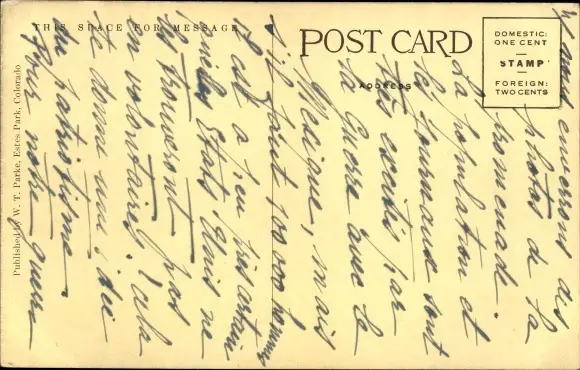 THIS SPACE FOR MESSAGE
POST CARD
ADDRESS
DOMESTIC:
ONE CENT
STAMP
FOREIGN:
TWO CENTS
Published by W. T. Parke, Estes Park, Colorado
enverrons des
photos de la
promenade.
La population et
les journaux sont
très excités par
la Guerre avec le
Mexique, mais
s'il faut 100 000 hommes
il est à peu près certain
que les Etats Unis ne
les trouveront pas
en volontaires! Cela
te donne une idée
du patriotisme
pour notre guerre